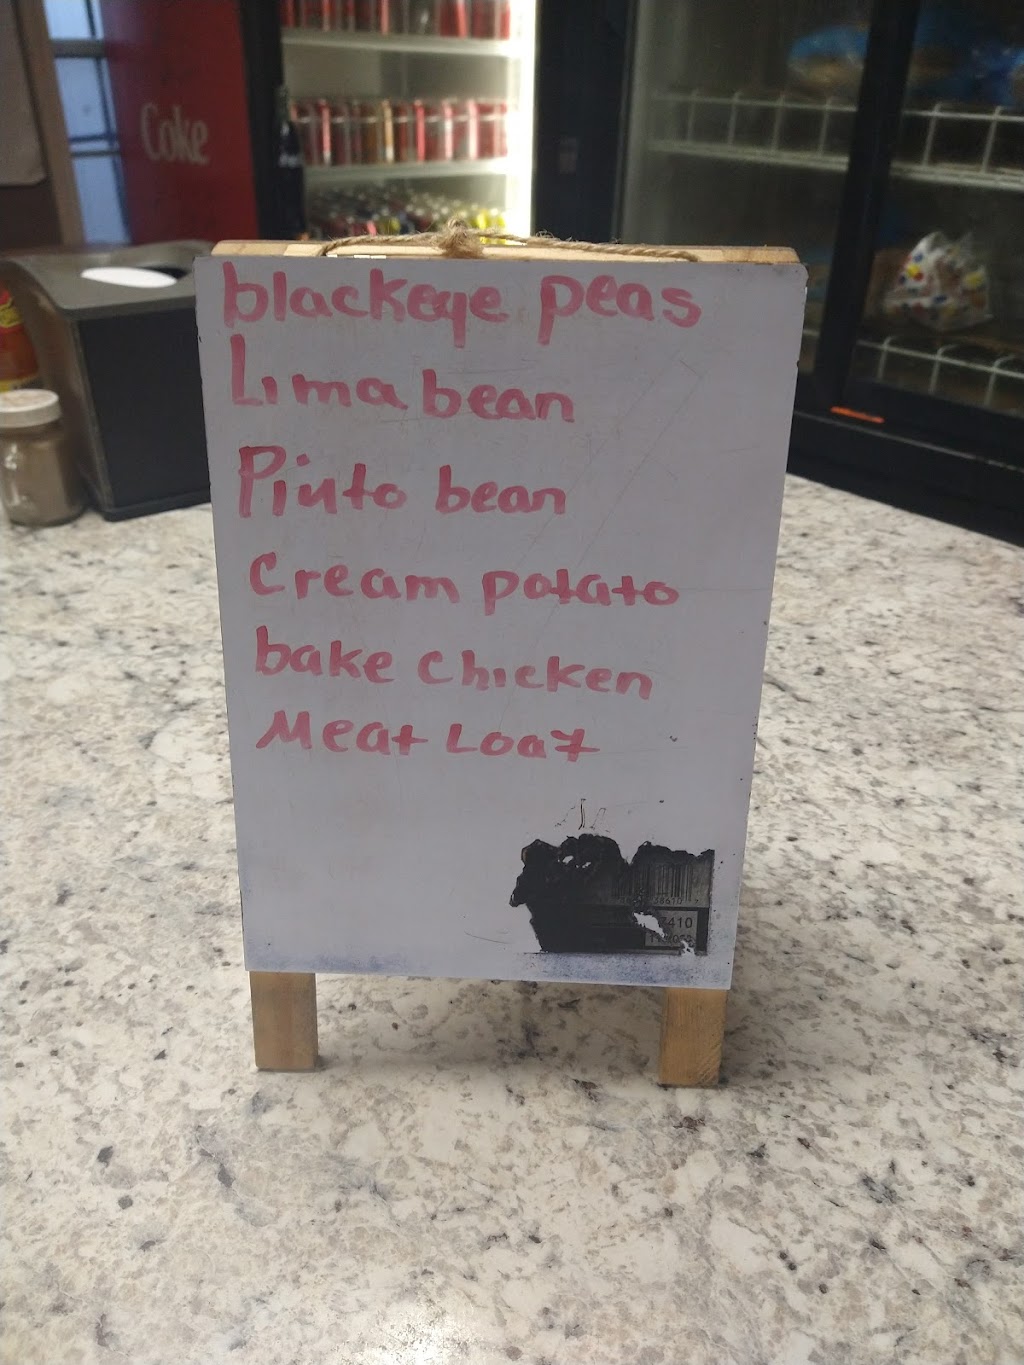 Coke
blackeye peas
Lima bean
Pinto bean
Cream potato
bake chicken
Meat Loaf